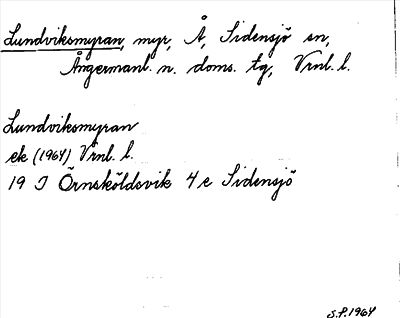 Lundviksmyran, myr, Å, Sidensjö sn,
Ångermanl. n. doms. tg, Vrnl. l.
Lundviksmyran
ek (1964) Vrnl. l.
19 J Örnsköldsvik 4 e Sidensjö
S.P. 1964